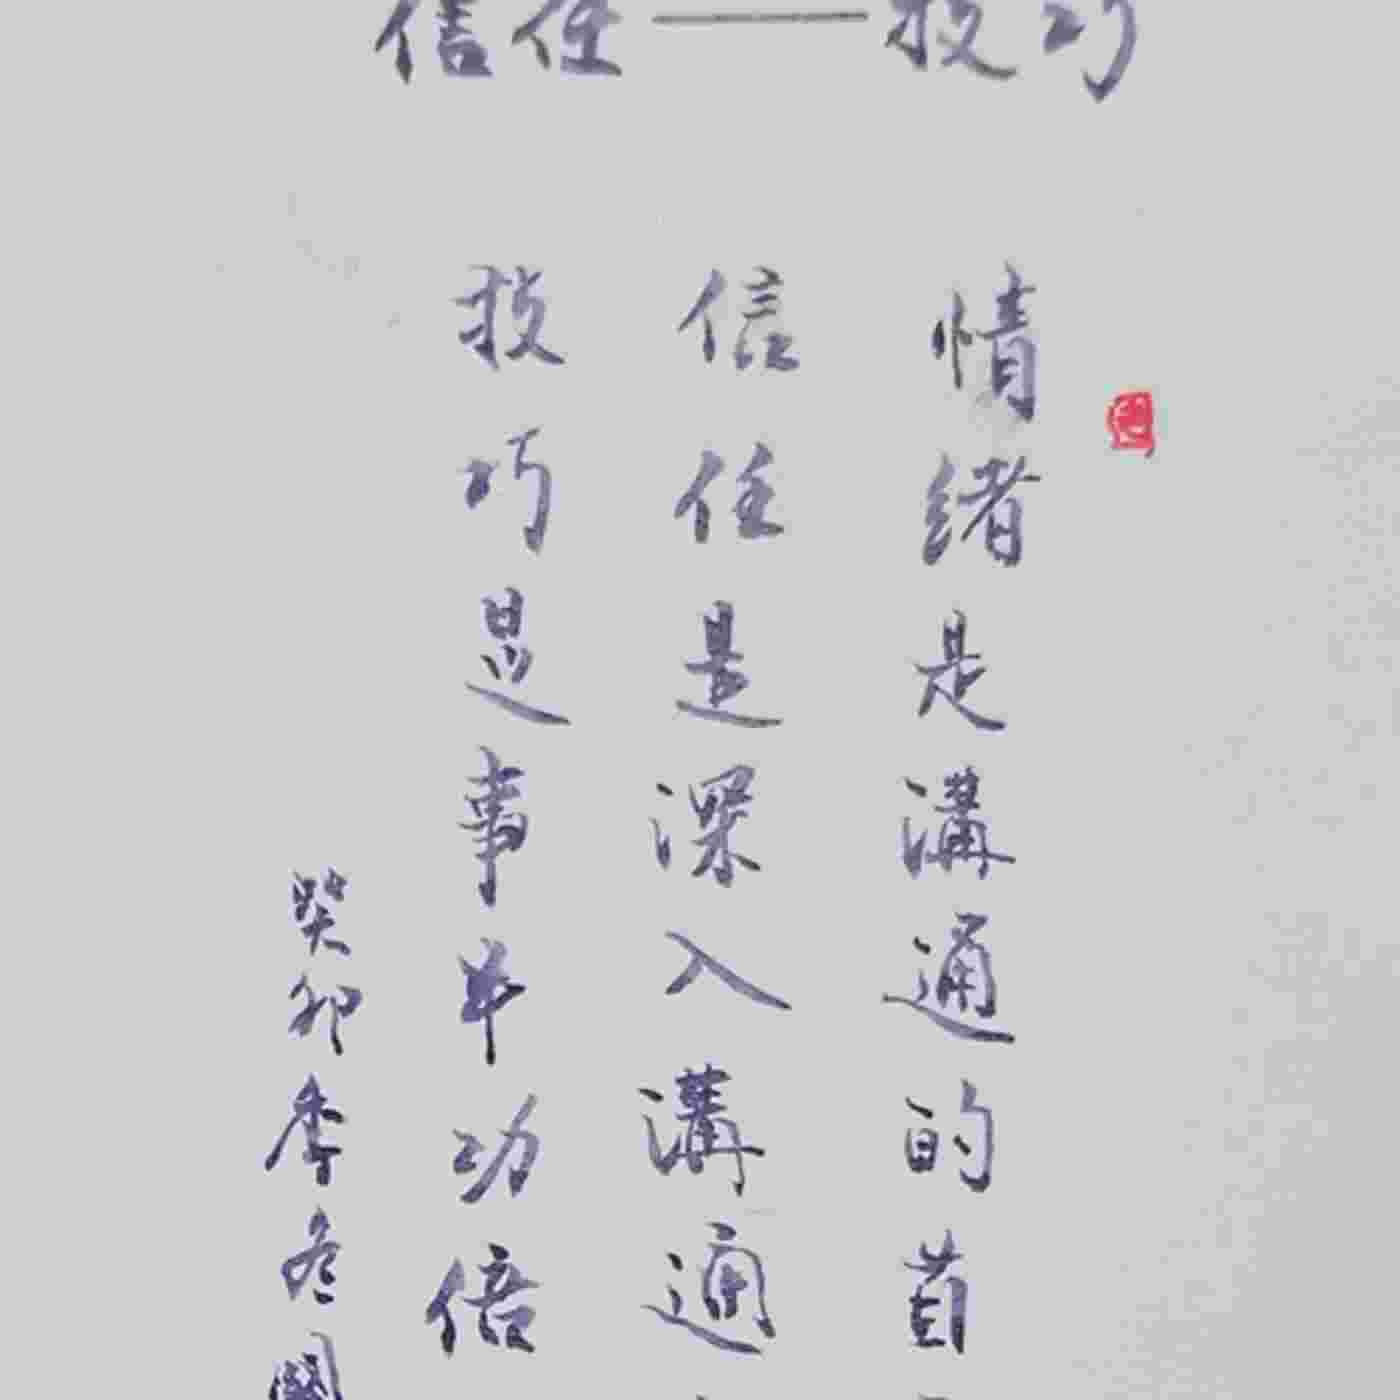 信任——技巧
情绪是溝通的首
信任是深入溝通
技巧是事半功倍
癸卯季冬